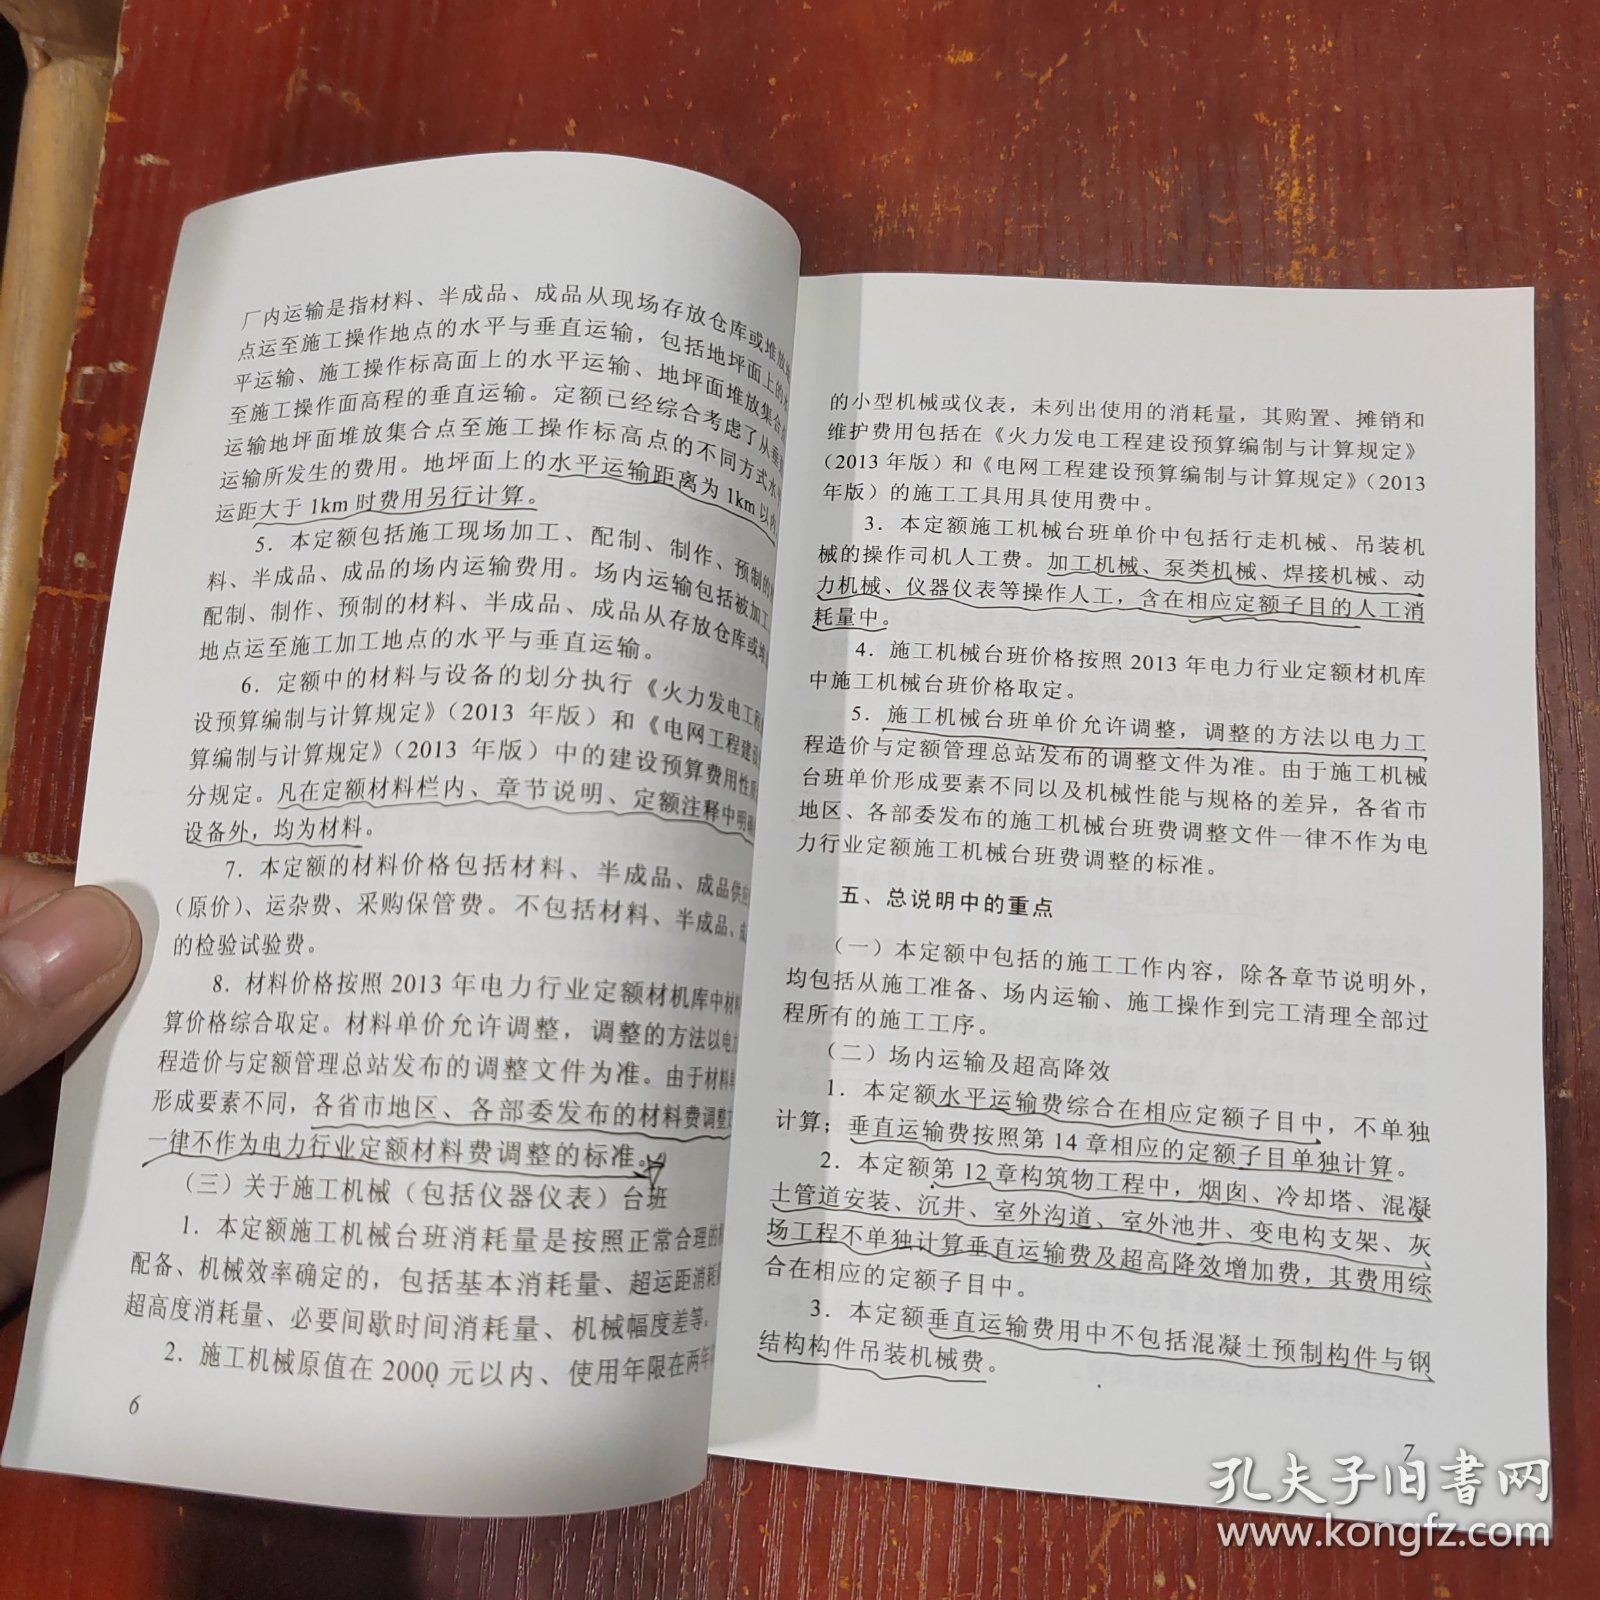 厂内运输是指材料、半成品、成品从现场存放仓库或堆放地
点运至施工操作地点的水平与垂直运输，包括地坪面上的水
平运输、施工操作标高面上的水平运输、地坪面堆放集合点
至施工操作面高程的垂直运输。定额已经综合考虑了从垂直
运输地坪面堆放集合点至施工操作标高点的不同方式水平
运输所发生的费用。地坪面上的水平运输距离为1km以内，
运距大于1km时费用另行计算。
5．本定额包括施工现场加工、配制、制作、预制的材
料、半成品、成品的场内运输费用。场内运输包括被加工、
配制、制作、预制的材料、半成品、成品从存放仓库或堆放
地点运至施工加工地点的水平与垂直运输。
6．定额中的材料与设备的划分执行《火力发电工程建
设预算编制与计算规定》（2013 年版）和《电网工程建设预
算编制与计算规定》（2013 年版）中的建设预算费用性质划
分规定。凡在定额材料栏内、章节说明、定额注释中明确
设备外，均为材料。
7．本定额的材料价格包括材料、半成品、成品供应价
（原价）、运杂费、采购保管费。不包括材料、半成品、成
的检验试验费。
8．材料价格按照 2013 年电力行业定额材机库中材料
算价格综合取定。材料单价允许调整，调整的方法以电力
程造价与定额管理总站发布的调整文件为准。由于材料单
形成要素不同，各省市地区、各部委发布的材料费调整文
一律不作为电力行业定额材料费调整的标准。
（三）关于施工机械（包括仪器仪表）台班
1．本定额施工机械台班消耗量是按照正常合理的机
配备、机械效率确定的，包括基本消耗量、超运距消耗量
超高度消耗量、必要间歇时间消耗量、机械幅度差等。
2．施工机械原值在 2000 元以内、使用年限在两年
6
的小型机械或仪表，未列出使用的消耗量，其购置、摊销和
维护费用包括在《火力发电工程建设预算编制与计算规定》
（2013 年版）和《电网工程建设预算编制与计算规定》（2013
年版）的施工工具用具使用费中。
3．本定额施工机械台班单价中包括行走机械、吊装机
械的操作司机人工费。加工机械、泵类机械、焊接机械、动
力机械、仪器仪表等操作人工，含在相应定额子目的人工消
耗量中。
4．施工机械台班价格按照 2013 年电力行业定额材机库
中施工机械台班价格取定。
5．施工机械台班单价允许调整，调整的方法以电力工
程造价与定额管理总站发布的调整文件为准。由于施工机械
台班单价形成要素不同以及机械性能与规格的差异，各省市
地区、各部委发布的施工机械台班费调整文件一律不作为电
力行业定额施工机械台班费调整的标准。
五、总说明中的重点
（一）本定额中包括的施工工作内容，除各章节说明外，
均包括从施工准备、场内运输、施工操作到完工清理全部过
程所有的施工工序。
（二）场内运输及超高降效
1．本定额水平运输费综合在相应定额子目中，不单独
计算；垂直运输费按照第 14 章相应的定额子目单独计算。
2．本定额第 12 章构筑物工程中，烟囱、冷却塔、混凝
土管道安装、沉井、室外沟道、室外池井、变电构支架、灰
场工程不单独计算垂直运输费及超高降效增加费，其费用综
合在相应的定额子目中。
3．本定额垂直运输费用中不包括混凝土预制构件与钢
结构构件吊装机械费。
7
孔夫子旧书网
www.kongfz.com